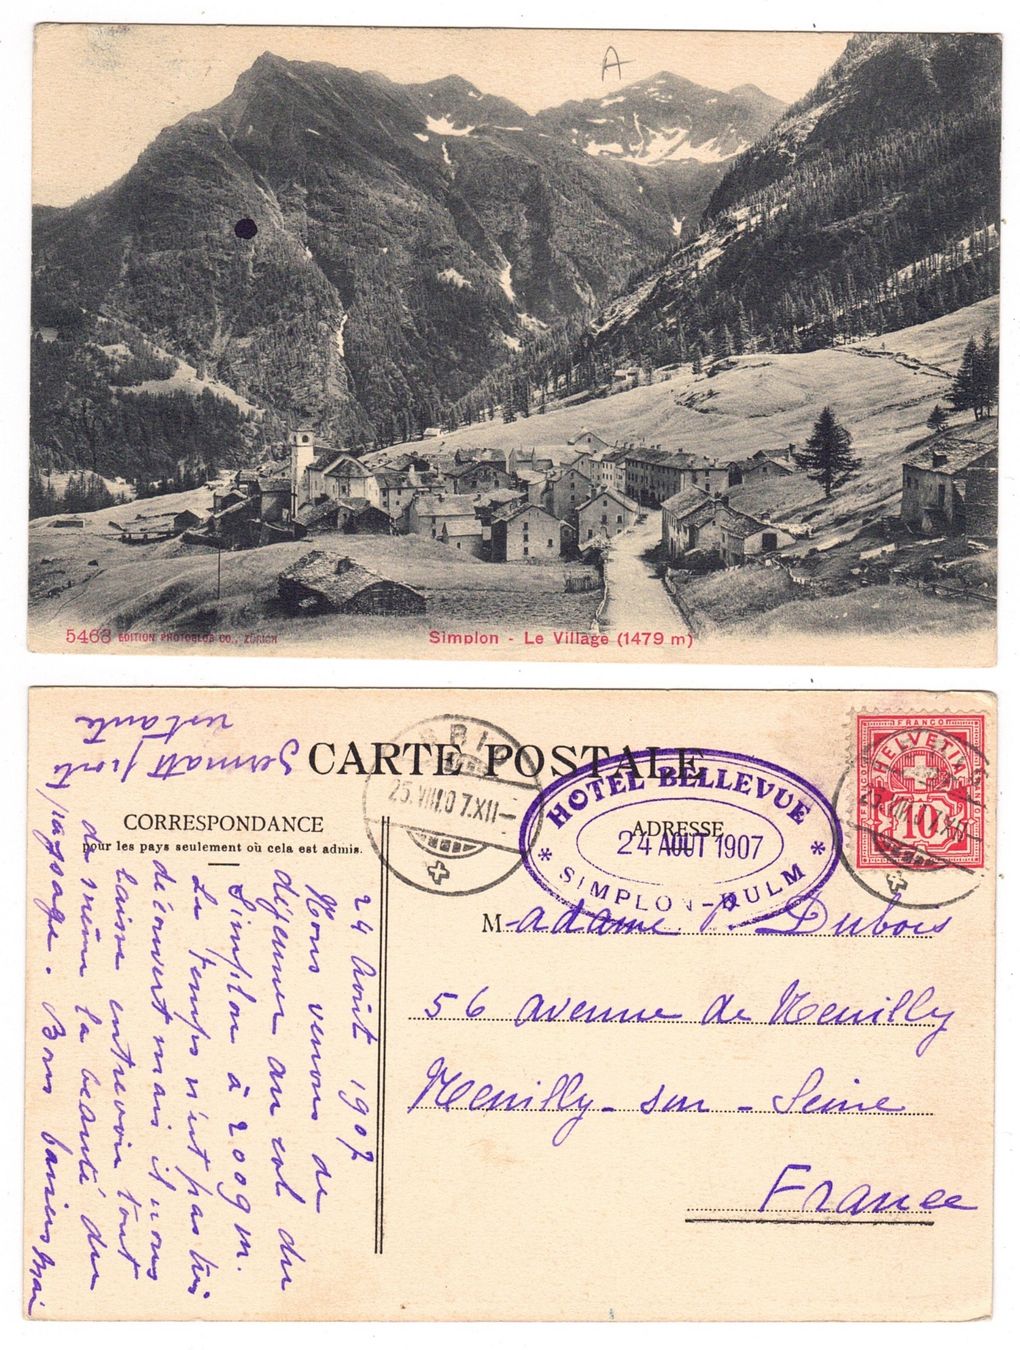 A
5463 EDITION PHOTOGLOB CO., ZÜRICH
Simplon - Le Village (1479 m)
CARTE POSTALE
CORRESPONDANCE
pour les pays seulement où cela est admis.
ADRESSE
BRIG
25.VIII.07.XII-
HOTEL BELLEVUE
24 AOUT 1907
* SIMPLON-KULM *
FRANCO
HELVETIA
10
25.VIII.07.XII-
Madame P. Dubois
56 avenue de Neuilly
Neuilly-sur-Seine
France
24 Août 1907
Nous venons de
déjeuner au col du
Simplon à 2009 m.
Le temps n'est pas très
découvert mais il nous
laisse entrevoir tout
de même la beauté du
paysage. Bons baisers
Zermatt poste
restante